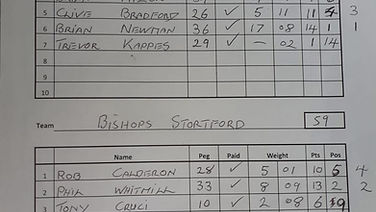 5 CLIVE BRADFORD 26 ✓ 5 11 11 3
6 BRIAN NEWMAN 36 ✓ 17 08 14 1 1
7 TREVOR KAPPIES 29 ✓ — 02 1 14
8
9
10
Team BISHOPS STORTFORD 59
Name Peg Paid Weight Pts Pos
1 ROB CALDERON 28 ✓ 5 01 10 5 4
2 PHIL WHITMILL 33 ✓ 8 09 13 2 2
3 TONY CRUCI 10 ✓ 2 08 6